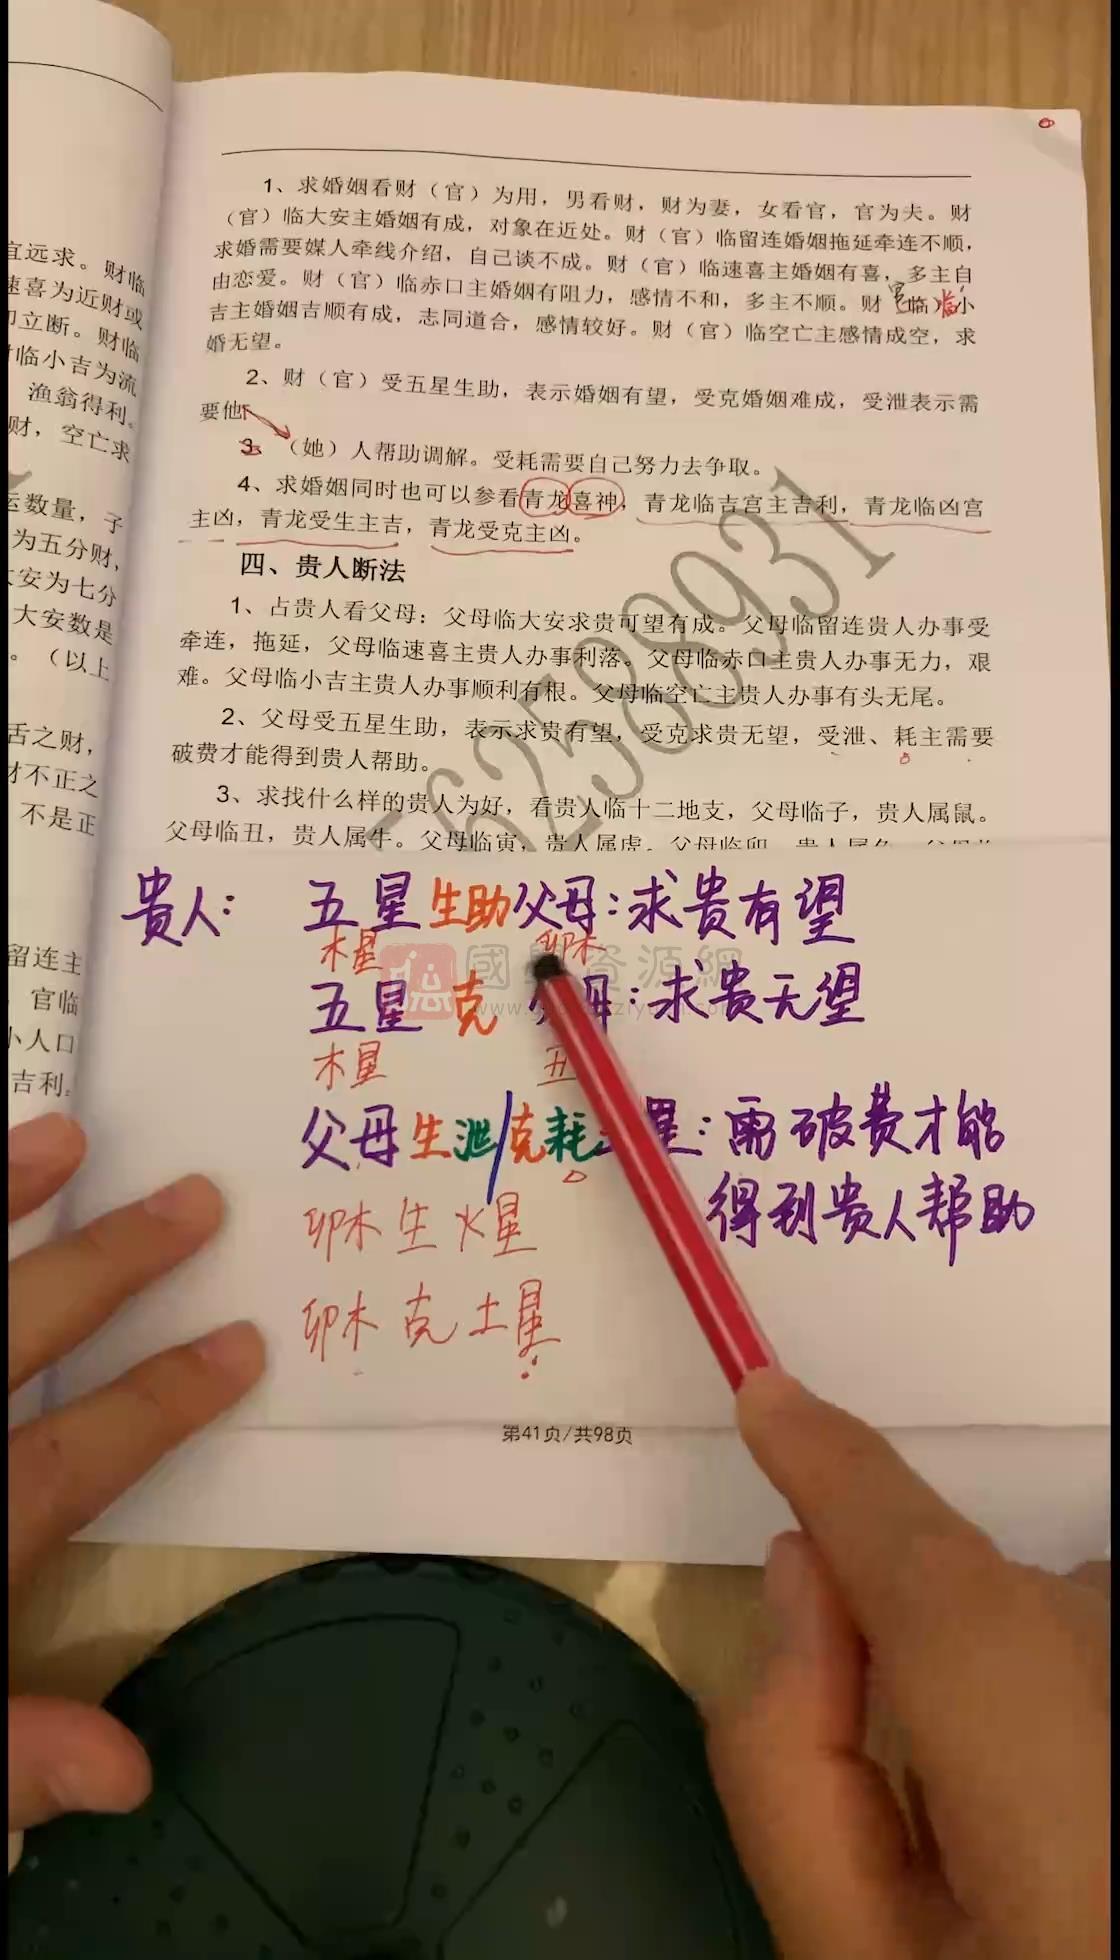 宜远求。财临
速喜为近财或
立断。财临
临小吉为流
渔翁得利。
财，空亡求
运数量，子
为五分财，
安为七分
大安数是
。（以上
舌之财，
才不正之
不是正
留连主
官临
小人口
吉利。
1、求婚姻看财（官）为用，男看财，财为妻，女看官，官为夫。财
（官）临大安主婚姻有成，对象在近处。财（官）临留连婚姻拖延牵连不顺，
求婚需要媒人牵线介绍，自己谈不成。财（官）临速喜主婚姻有喜，多主自
由恋爱。财（官）临赤口主婚姻有阻力，感情不和，多主不顺。财 官临）临小
吉主婚姻吉顺有成，志同道合，感情较好。财（官）临空亡主感情成空，求
婚无望。
2、财（官）受五星生助，表示婚姻有望，受克婚姻难成，受泄表示需
要他
3、（她）人帮助调解。受耗需要自己努力去争取。
4、求婚姻同时也可以参看青龙喜神，青龙临吉宫主吉利，青龙临凶宫
主凶，青龙受生主吉，青龙受克主凶。
四、贵人断法
1、占贵人看父母：父母临大安求贵可望有成。父母临留连贵人办事受
牵连，拖延，父母临速喜主贵人办事利落。父母临赤口主贵人办事无力，艰
难。父母临小吉主贵人办事顺利有根。父母临空亡主贵人办事有头无尾。
2、父母受五星生助，表示求贵有望，受克求贵无望，受泄、耗主需要
破费才能得到贵人帮助。
3、求找什么样的贵人为好，看贵人临十二地支，父母临子，贵人属鼠。
父母临丑，贵人属牛。父母临寅，贵人属虎。父母临卯，贵人属兔。
762588931
贵人： 五星生助父母：求贵有望
木星 卯木
五星 克 母：求贵无望
木星 丑
父母生泄/克耗 星：需破费才能
得到贵人帮助
卯木生火星
卯木克土星
國學資源網
第41页/共98页